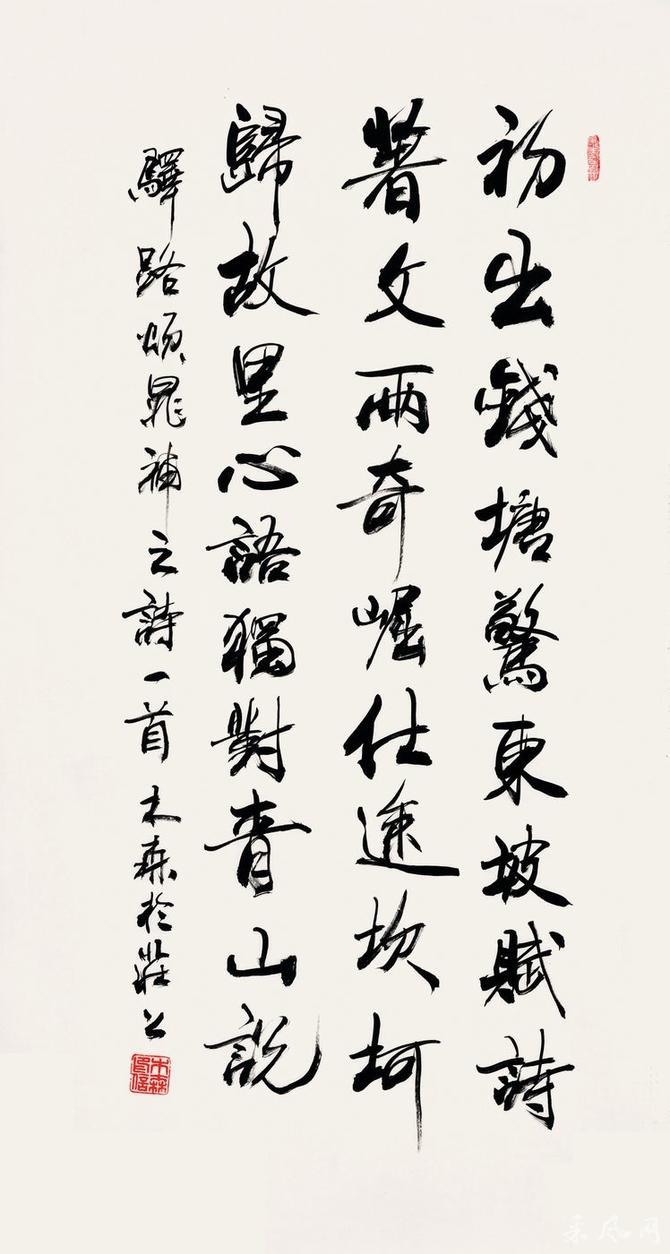 初出錢塘驚東坡賦詩
著文兩奇崛仕途坎坷
歸故里心語獨對青山說
驛路頌晁補之詩一首 木森於莊公
采风网